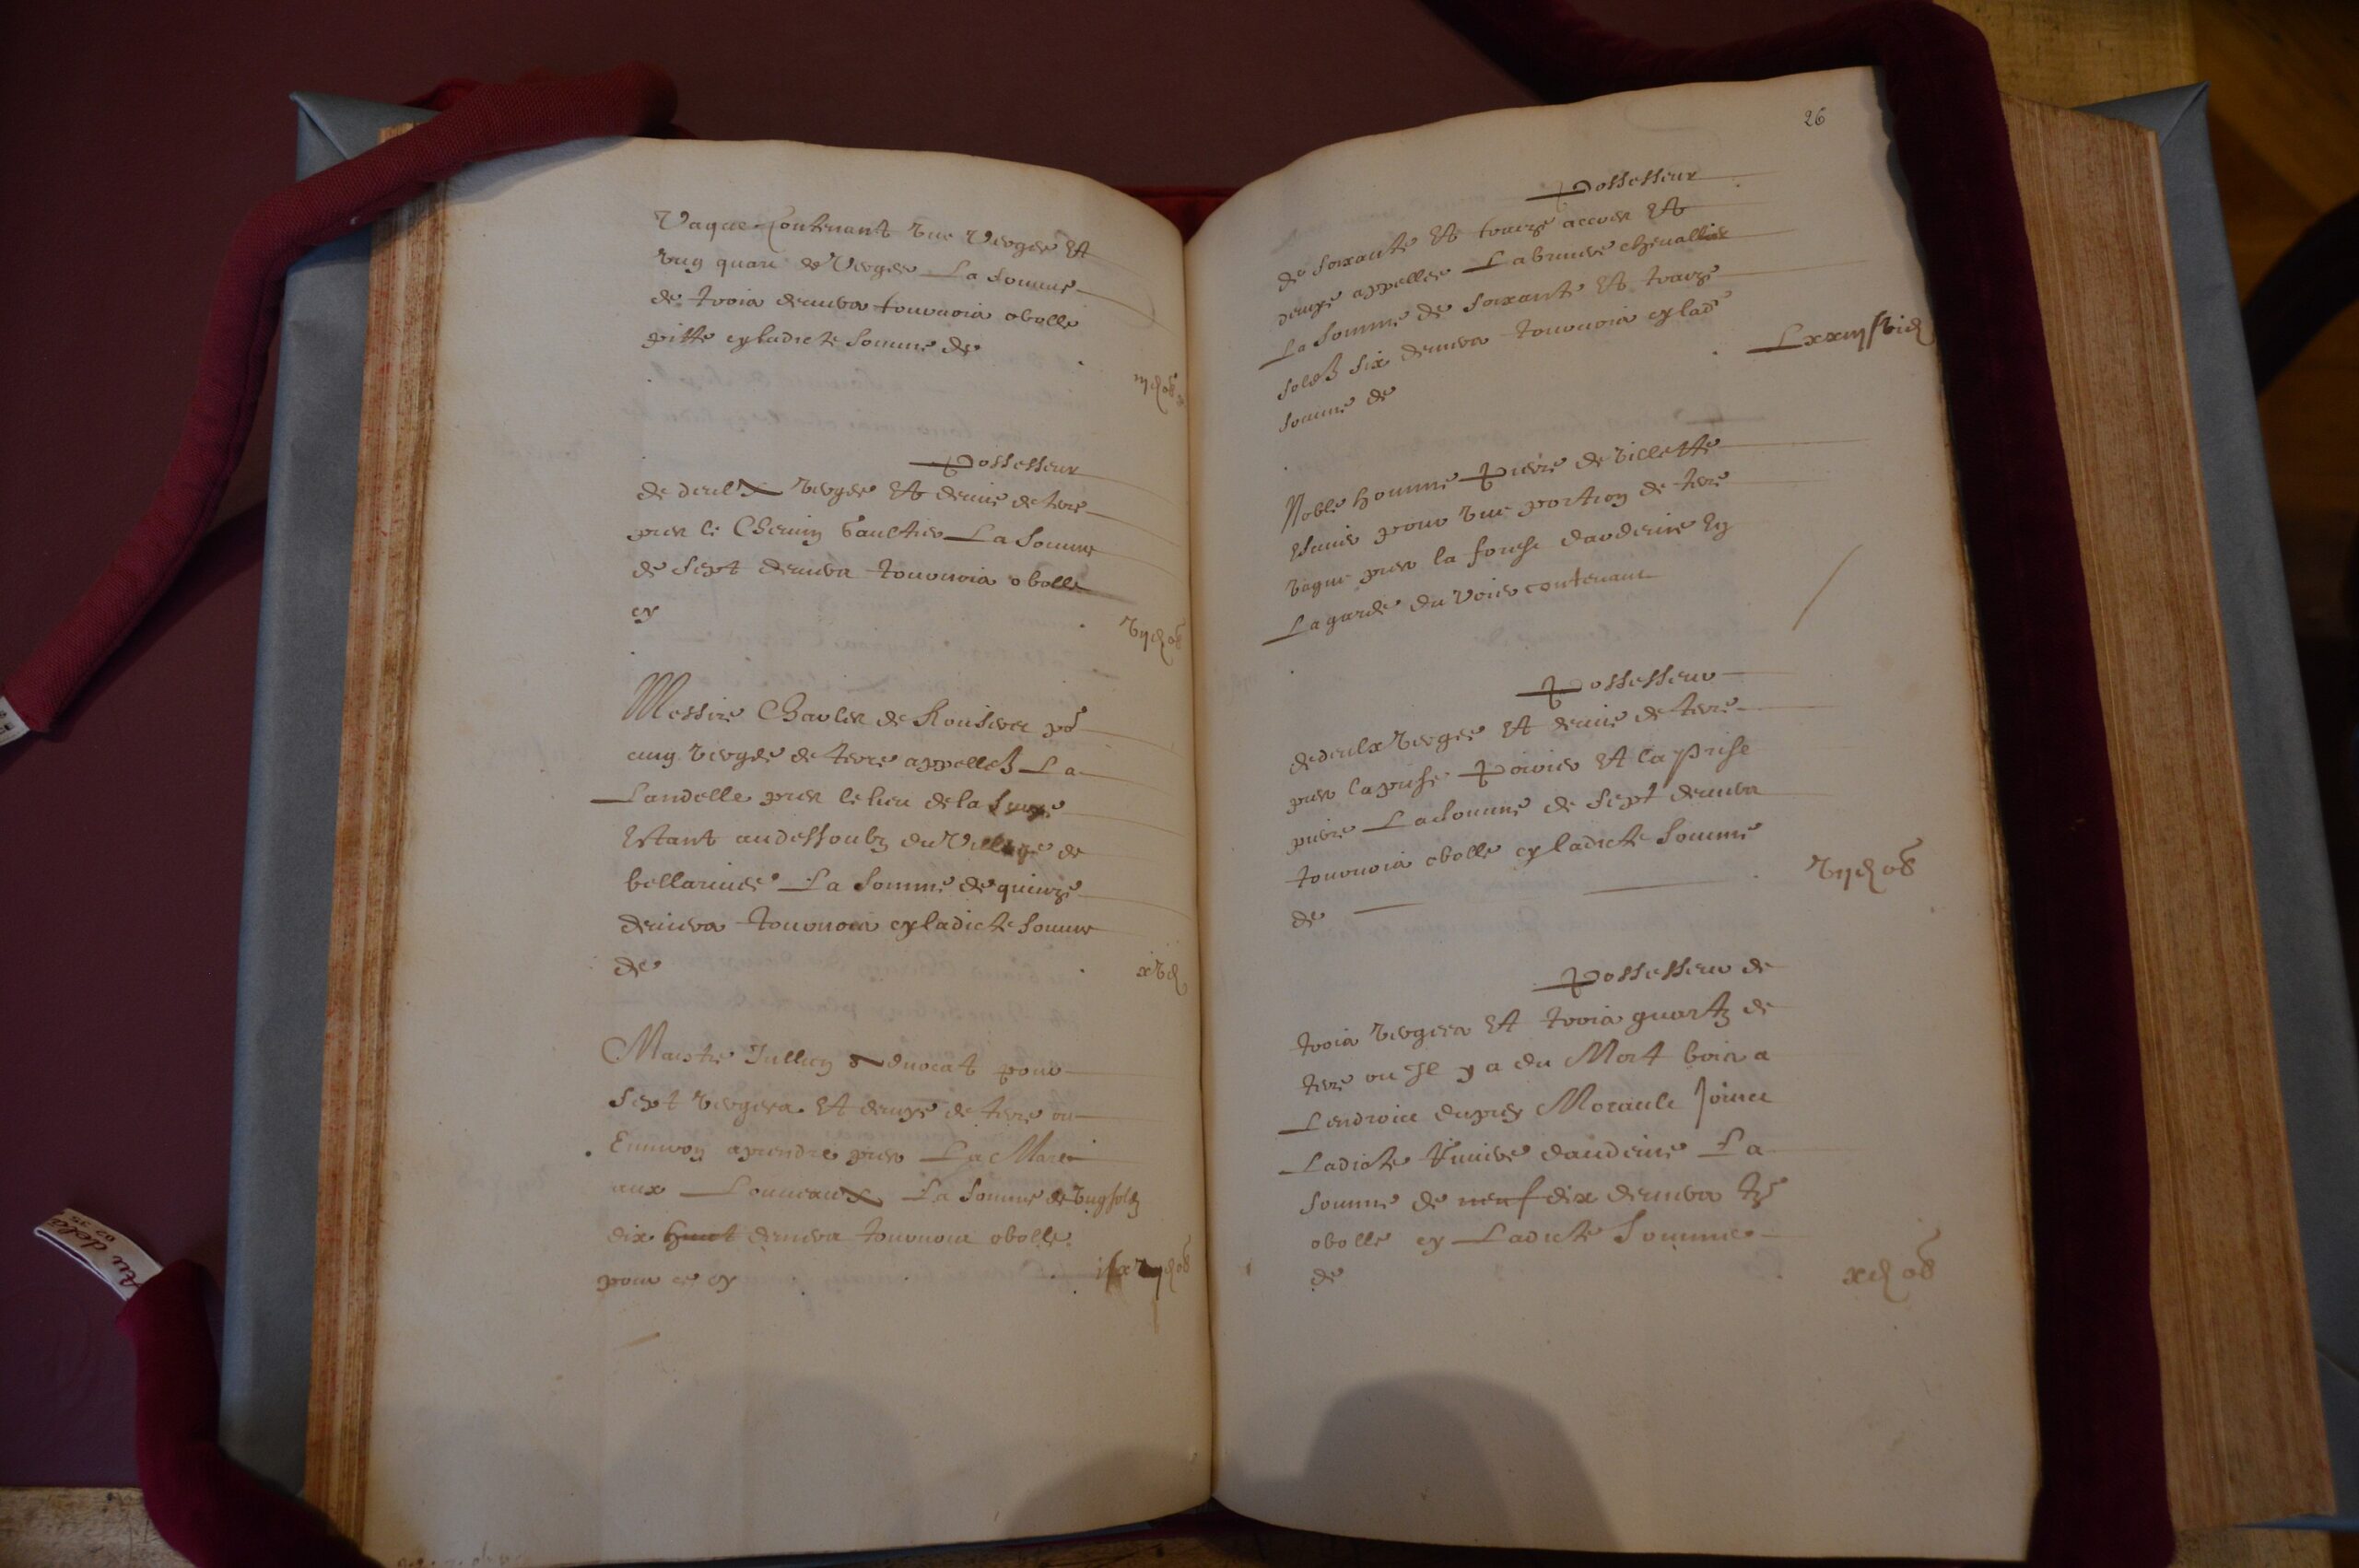 Vague Contenant une Vergee Et
ung quart de Vergee La Somme
de trois deniers tournois obolle
pitte cy ladicte Somme de
iij d ob
Possesseur
de deulx vergee Et demie de terre
pres le Chemin Gaultier La Somme
de Sept deniers tournois obolle
cy
vij d ob
Messire Charles de Rouserez por
cinq vergee de terre appellez La
Landelle pres le lieu de la
Estant au dessoubz du Village de
La Somme de quinze
deniers tournois cy ladicte Somme
de
xv d
Maistre Jullien Advocat pour
Sept vergees Et demye de terre ou
Environ a prendre pres La Mare
aux Louveaux La Somme de ung solz
dix huict deniers tournois obolle
pour ce cy
26
Possesseur
de Soixante Et traize accres Et
demye appellee La bruiere chevallier
La Somme de Soixante Et traize
solz Six deniers tournois cy lade
Somme de
Lxxiij s vi d
Noble homme Pierre de Villette
Escuier pour une portion de terre
Vague pres la forest dandeine En
La garde du Voier contenant
Possesseur
de deulx vergee Et demie de terre
pres la prise Poirier Et la prise
pierre La Somme de Sept deniers
tournois obolle cy ladicte Somme
de
vij d ob
Possesseur de
trois vergees Et trois quartz de
terre ou Il y a du Mort bois a
Lendroict du prey Moraule Joinct
Ladicte dandeine La
Somme de neuf dix deniers tz
obolle cy Ladicte Somme
de
x d ob
Au delà